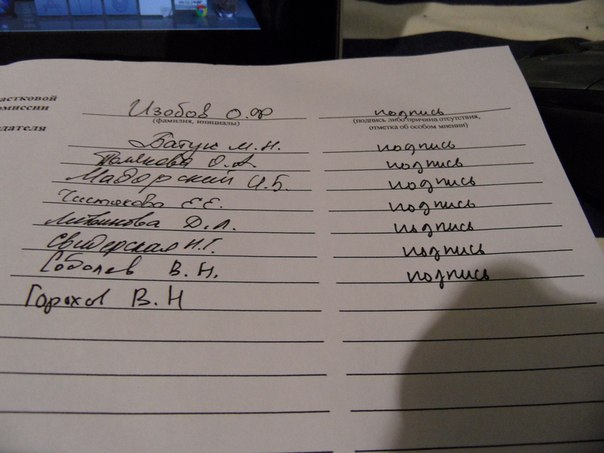 астковой
омиссии Изобов О.Ф подпись
(фамилия, инициалы) (подпись либо причина отсутствия,
отметка об особом мнении)
дателя
Батук М.Н. подпись
Полякова О.А подпись
Мадорский И.Б. подпись
Чистякова Е.Е. подпись
Литвинова Д.Л. подпись
Свидерская Н.Г. подпись
Соболев В.Н. подпись
Горохов В.Н